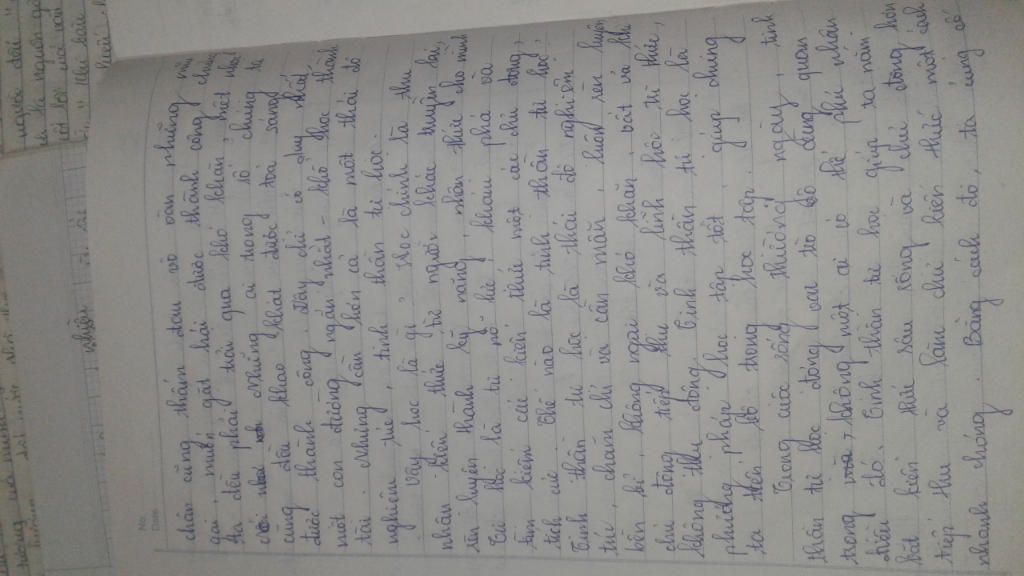 No.
Date
chân cũng thấm đau vô vàn những mũi
gai, muốn gặt hái được thành công chúng
ta đều phải trải qua khó khăn, mệt nhọc
Những ai trong số chúng ta
cũng đều khao khát được toả sáng
được thành công. Đây chỉ có duy nhất
một con đường ngắn nhất - khổ học thành
tài. Nhưng cần hơn cả là một thái độ
nghiêm túc, tinh thần tự học.
Vậy học là gì? Học chính là thu
nhận kiến thức từ người khác truyền lại,
rèn luyện thành kỹ năng, nhận thức cho mình
Tự học là tự nỗ lực, khám phá và
tìm kiếm cái kiến thức một cách chủ động,
tích cực. Thế nào là tinh thần tự học,
Tinh thần tự học là thái độ nghiêm
túc, chăm chỉ và cần mẫn, luôn rèn luyện
bền bỉ, không ngại khó khăn, vất vả khi
chủ động tiếp thu và lĩnh hội tri thức,
không thụ động. Tinh thần tự học là
phương pháp học tập tốt, giúp chúng
ta tiến bộ trong học tập.
Trong cuộc sống thường ngày, tinh
thần tự học đóng vai trò vô cùng quan
trọng, không một ai có thể phủ nhận
điều đó. Tinh thần tự học giúp ta nắm
bắt kiến thức sâu rộng và chủ động hơn
tiếp thu và làm chủ kiến thức một cách
nhanh chóng. Bằng cách đó, ta cũng có
nhiều